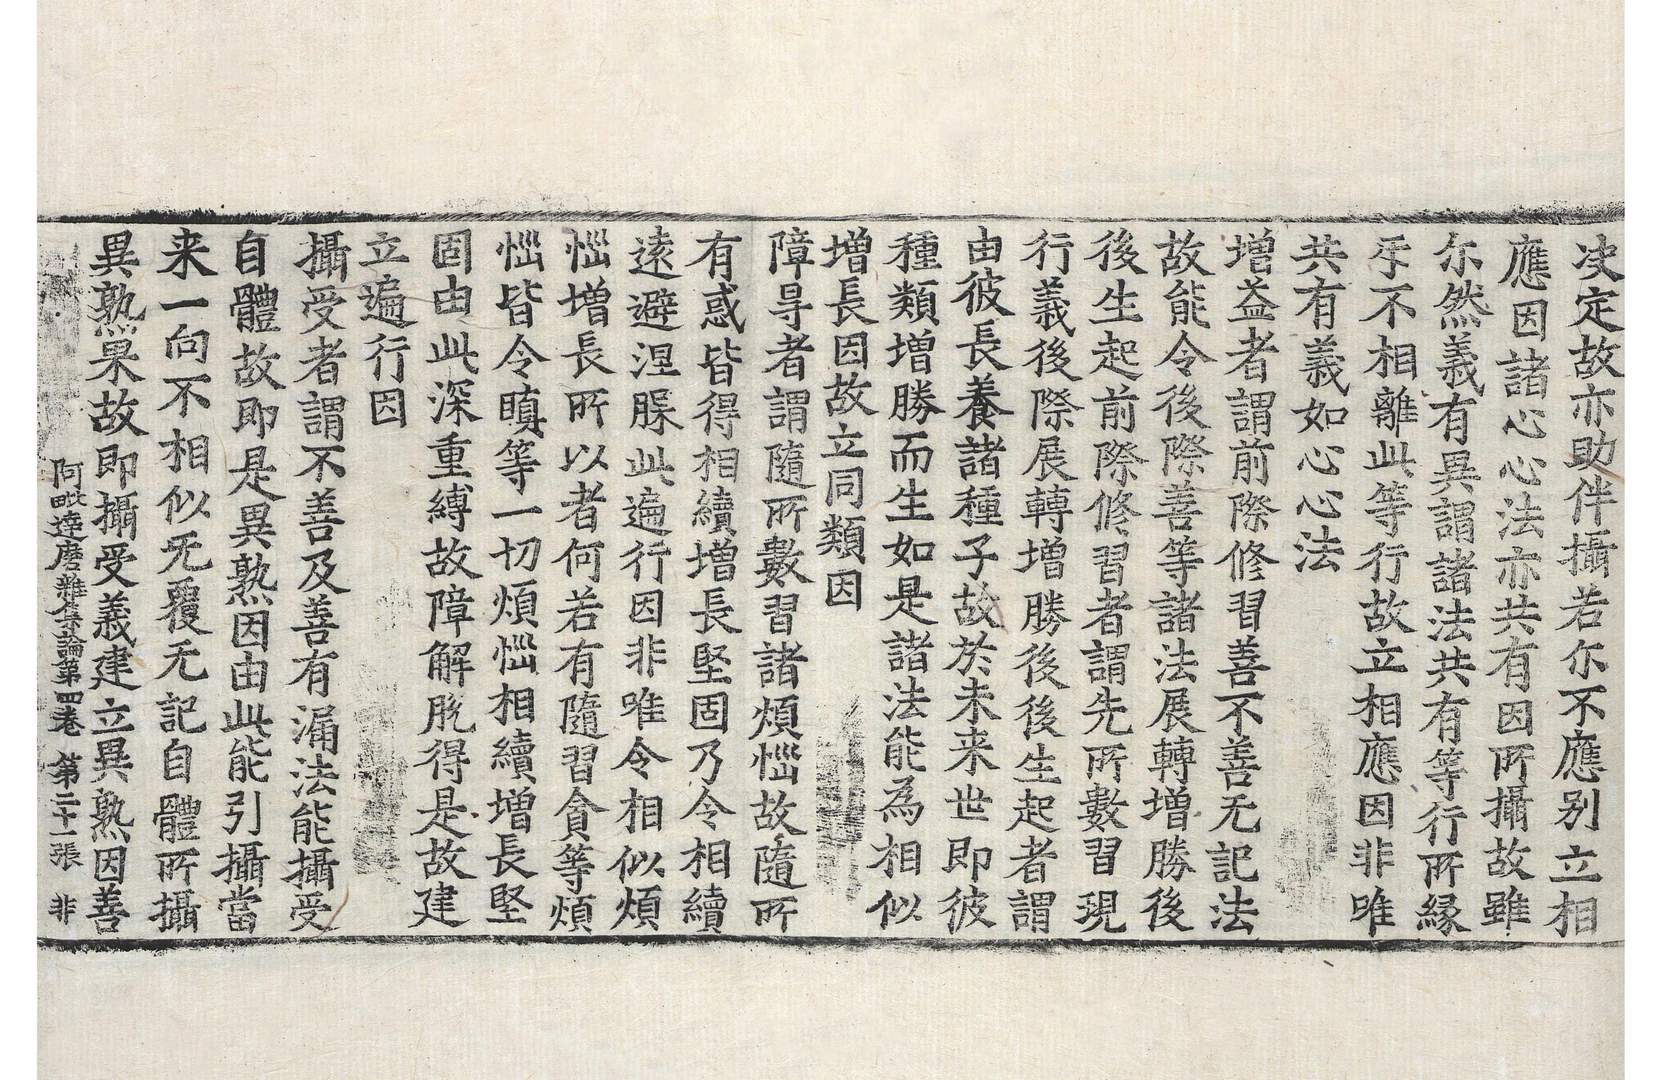 决定故亦助伴攝若尒不應别立相
應因諸心心法亦共有因所攝故雖
尒然義有異謂諸法共有等行所縁
乎不相離此等行故立相應因非唯
共有義如心心法
增益者謂前際修習善不善无記法
故能令後際善等諸法展轉增勝後
後生起前際修習者謂先所數習現
行義後際展轉增勝後後生起者謂
由彼長養諸種子故於未来世即彼
種類增勝而生如是諸法能為相似
增長因故立同類因
障㝵者謂隨所數習諸煩惱故隨所
有惑皆得相續增長堅固乃令相續
逺避涅槃此遍行因非唯令相似煩
惱增長所以者何若有隨習貪等煩
惱皆令瞋等一切煩惱相續增長堅
固由此深重縛故障解脫得是故建
立遍行因
攝受者謂不善及善有漏法能攝受
自體故即是異熟因由此能引攝當
来一向不相似无覆无記自體所攝
異熟果故即攝受義建立異熟因善
阿毗達磨雜集論第四卷 第二十一張 非